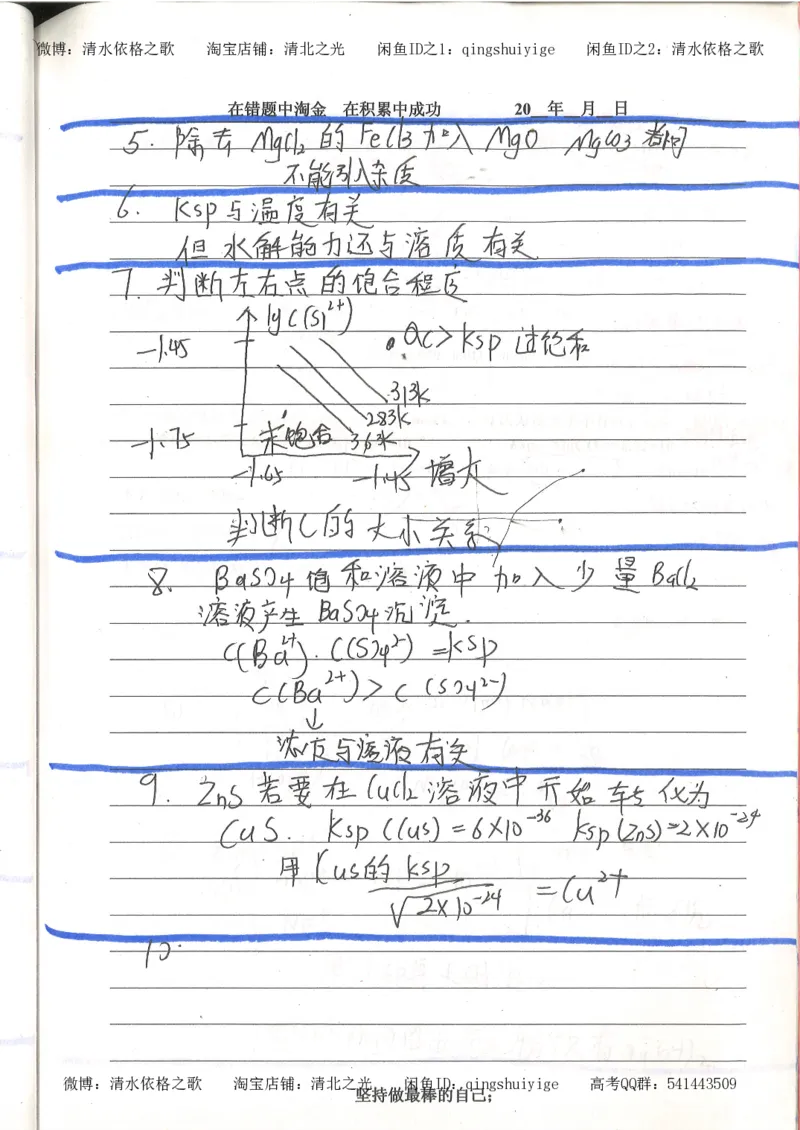 微博：清水依格之歌 淘宝店铺：清北之光 闲鱼ID之1：qingshuiyige 闲鱼ID之2：清水依格之歌
在错题中淘金 在积累中成功 20__年__月__日
5. 除去 MgCl2 的 FeCl3 加入 MgO MgCO3 都可
不能引入杂质
6. Ksp与温度有关
但水解能力还与溶质有关
7. 判断左右点的饱合程度
lgC(S)²⁺)
-1.45
Qc>Ksp 过饱和
313K
283K
未饱合 363K
-1.75
-1.65 -1.45 增大
判断C的大小关系
8. BaSO4饱和溶液中加入少量BaCl2
溶液产生BaSO4沉淀.
C(Ba²⁺)·C(SO4²⁻)=Ksp
C(Ba²⁺)>C(SO4²⁻)
↓
浓度与溶液有关
9. ZnS若要在CuCl2溶液中开始转化为
CuS. Ksp(Cus)=6×10⁻³⁶ Ksp(ZnS)=2×10⁻²⁴
用Cus的Ksp
√2×10⁻²⁴ =Cu²⁺
10.
微博：清水依格之歌 淘宝店铺：清北之光 闲鱼ID：qingshuiyige 高考QQ群：541443509
坚持做最棒的自己;